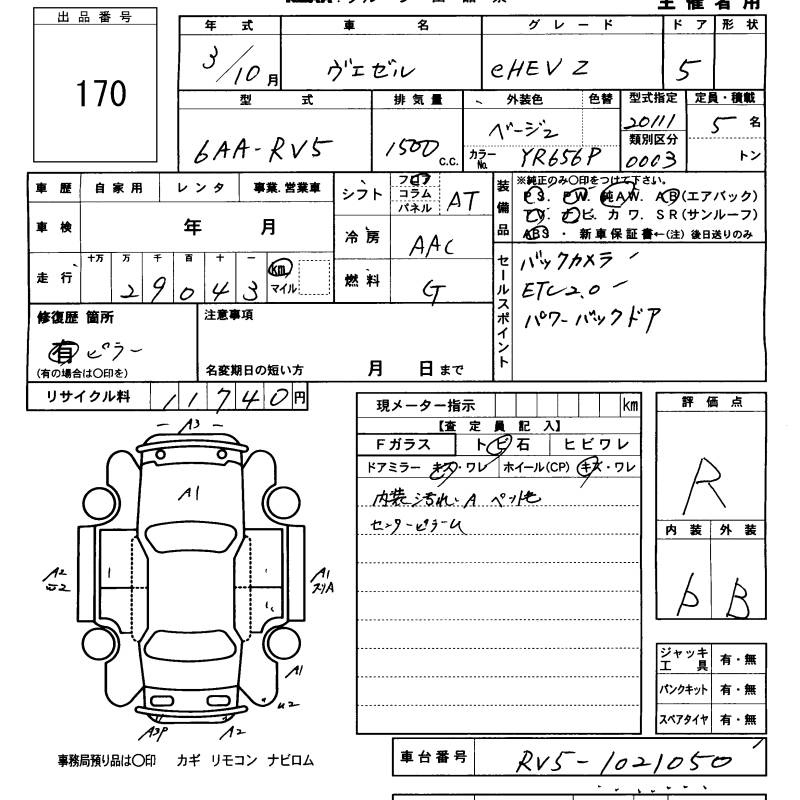 主催者用
出品番号
170
年式 車名 グレード ドア 形状
3/10月 ヴェゼル eHEV Z 5
型式 排気量 外装色 色替 型式指定 定員・積載
6AA-RV5 1500 C.C. ベージュ 20111 5名
カラーNo. YR656P 類別区分 0003 トン
車歴 自家用 レンタ 事業.営業車
車検 年 月
走行 十万 万 千 百 十 一 km
29043 マイル
シフト フロア コラム パネル AT
冷房 AAC
燃料 G
装備品 ※純正のみ〇印をつけて下さい。
PS. PW. 純AW. AB(エアバック)
TV. ナビ. カワ. SR(サンルーフ)
ABS ・ 新車保証書←(注) 後日送りのみ
セールスポイント
バックカメラ
ETC2.0
パワーバックドア
修復歴 箇所
有 ピラー
(有の場合は〇印を)
注意事項
名変期日の短い方 月 日まで
リサイクル料 11740円
現メーター指示 km
【査定員記入】
Fガラス トビ石 ヒビワレ
ドアミラー キズ・ワレ ホイール(CP) キズ・ワレ
内装汚れ、A
センターピラー
評価点
R
内装 外装
B
A3
A1
A2
A1
A1
A3P A2
ジャッキ工具 有・無
パンクキット 有・無
スペアタイヤ 有・無
事務局預り品は〇印 カギ リモコン ナビロム
車台番号 RV5-1021050